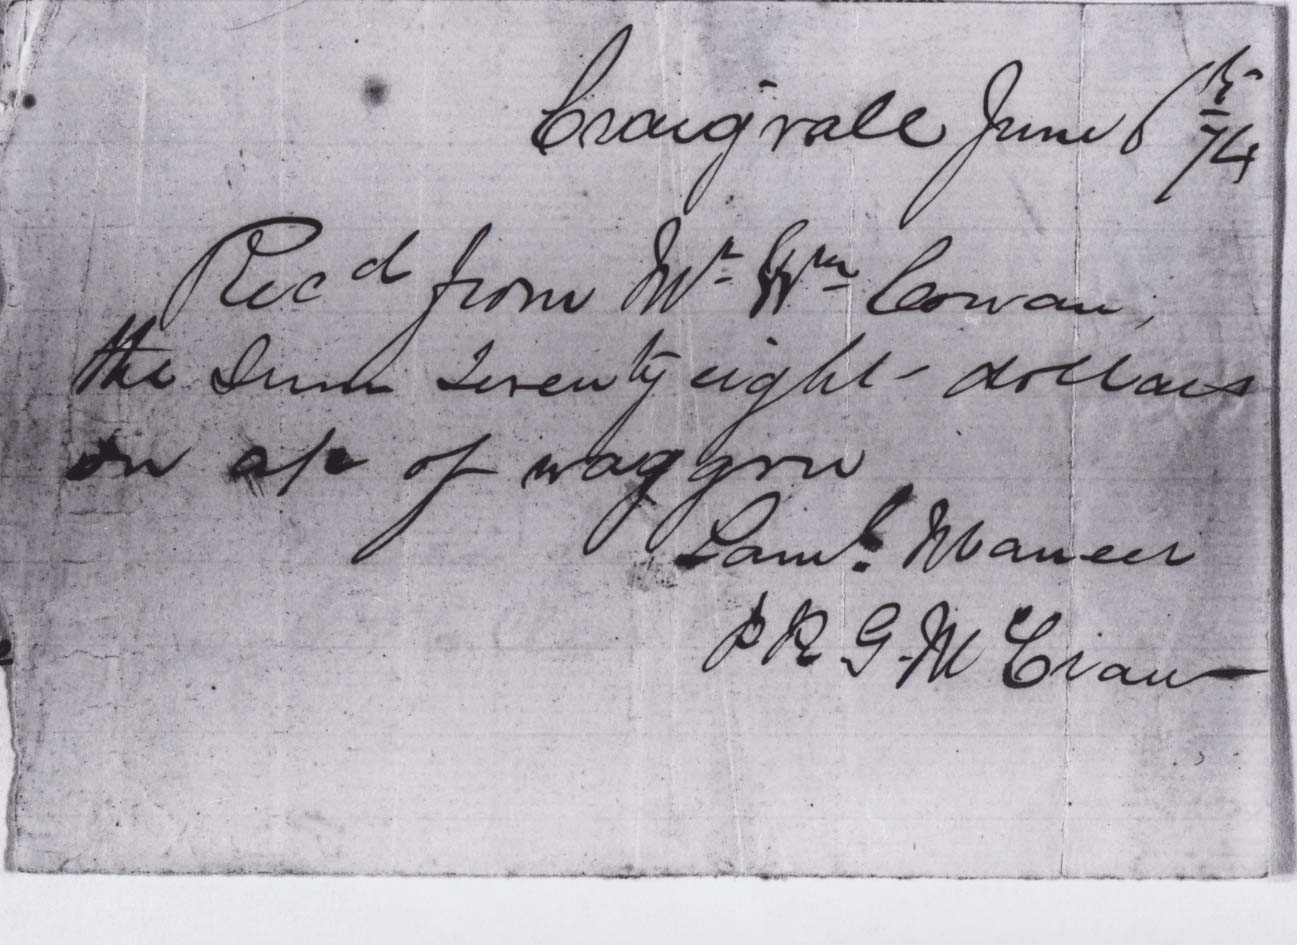 Craigvale June 6th/74
Recd from Mr Wm Cowan,
the Sum Seventy eight dollars
on a/c of waggon
Saml. Maneer
p R G. McCraw